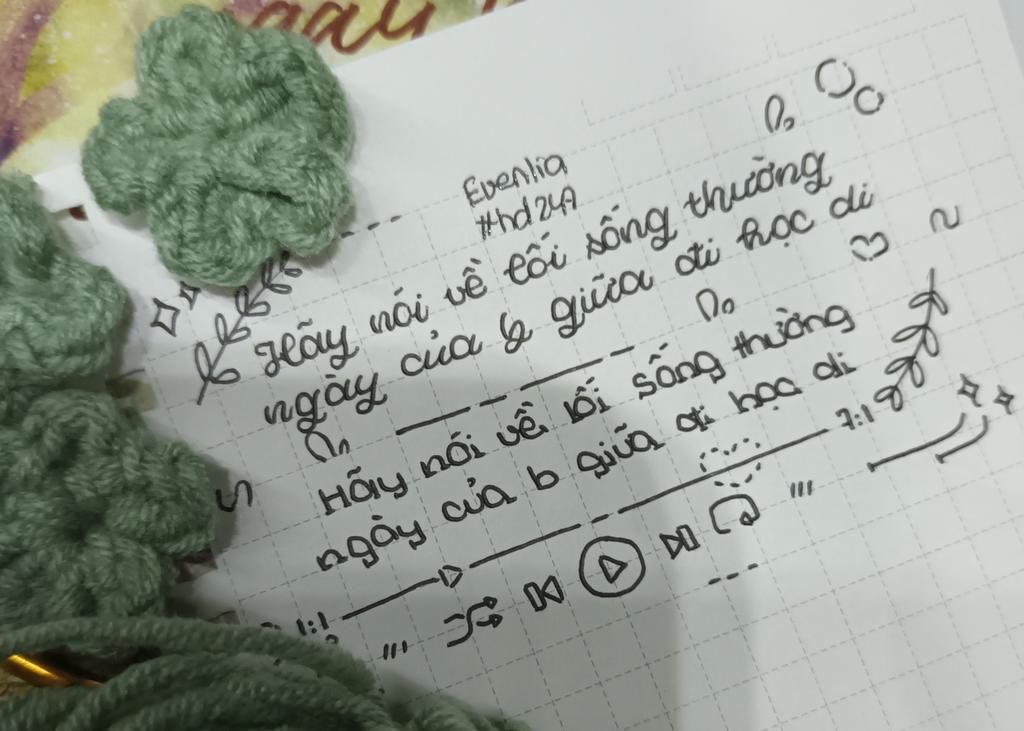 Evenlia
#hd247
Hãy nói về lối sống thường
ngày của b giữa đi học di
Hãy nói về lối sống thường
ngày của b giữa đi học di
7:1
1:1